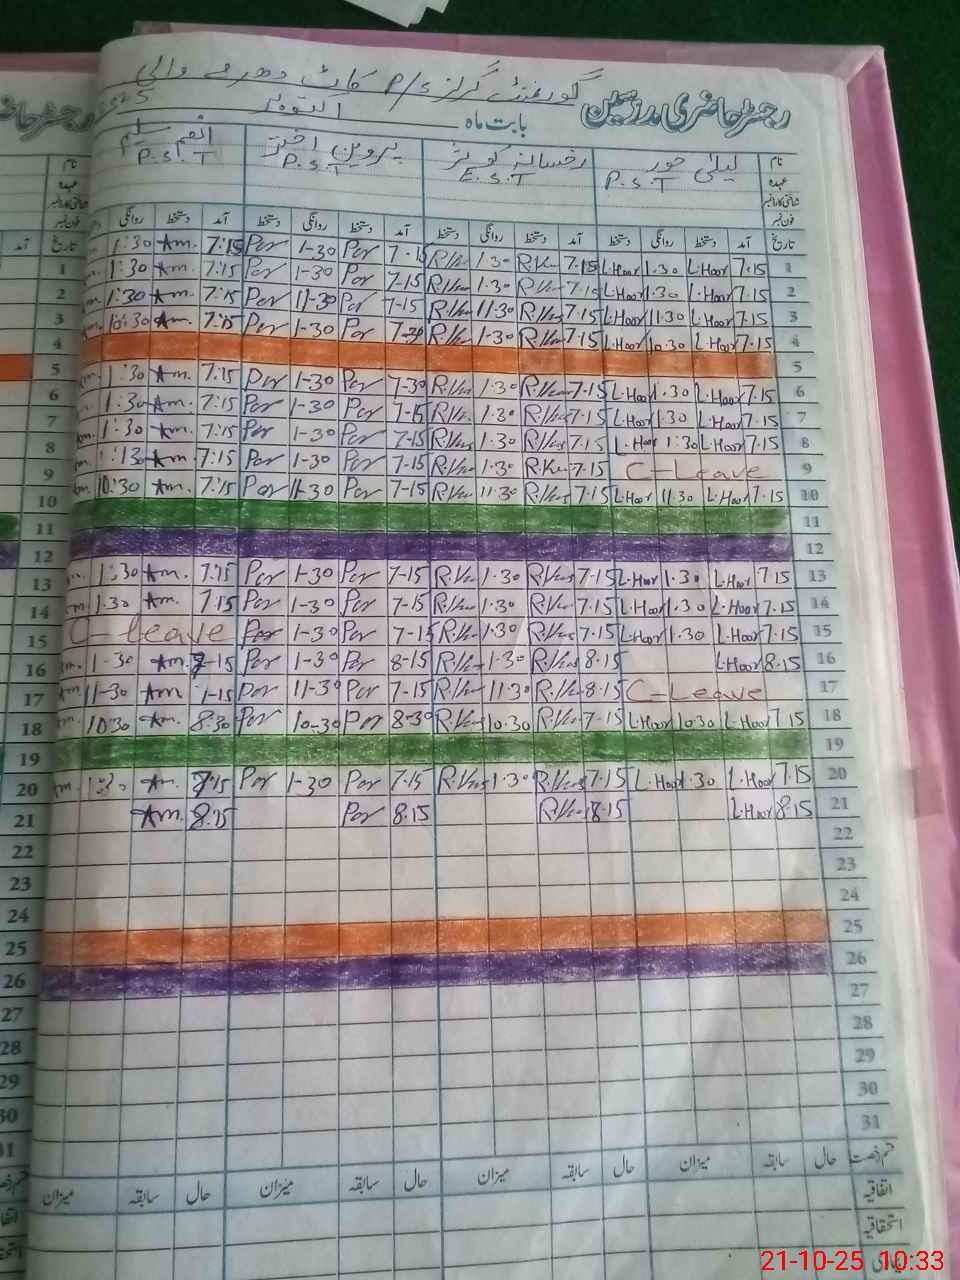 رجسٹر حاضری مدرسین گورنمنٹ گرلز P/S کاٹ دھرمے والی
بابت ماہ اکتوبر
نام لیلیٰ حور رخسانہ کوثر پروین اختر انعم سلیم
عہدہ P.S.T E.S.T P.S.T P.S.T
شناختی کارڈ نمبر
فون نمبر
تاریخ آمد دستخط روانگی دستخط آمد دستخط روانگی دستخط آمد دستخط روانگی دستخط آمد دستخط روانگی
1 7.15 L.Hoor 1.30 L.Hoor 7.15 R.Ku 1.30 R.Ku 7-15 Par 1-30 Par 7:15 Am. 1:30
2 7.15 L.Hoor 1.30 L.Hoor 7.15 R.Ku 1.30 R.Ku 7-15 Par 1-30 Par 7:15 Am. 1:30
3 7.15 L.Hoor 11.30 L.Hoor 7.15 R.Ku 11.30 R.Ku 7-15 Par 11-30 Par 7:15 Am. 1:30
4 7.15 L.Hoor 10.30 L.Hoor 7.15 R.Ku 1.30 R.Ku 7-30 Par 1-30 Par 7:15 Am. 10:30
5
6 7.15 L.Hoor 1.30 L.Hoor 7.15 R.Ku 1.30 R.Ku 7-30 Par 1-30 Par 7:15 Am. 1:30
7 7.15 L.Hoor 1.30 L.Hoor 7.15 R.Ku 1.30 R.Ku 7-15 Par 1-30 Par 7:15 Am. 1:30
8 7.15 L.Hoor 1:30 L.Hoor 7.15 R.Ku 1.30 R.Ku 7-15 Par 1-30 Par 7:15 Am. 1:30
9 C-Leave 7.15 R.Ku 1.30 R.Ku 7-15 Par 1-30 Par 7:15 Am
10 7.15 L.Hoor 11.30 L.Hoor 7.15 R.Kus 11.30 R.Ku 7-15 Par 11-30 Par 7:15 Am. 10:30
11
12
13 7.15 L.Hoor 1.30 L.Hoor 7.15 R.Kus 1.30 R.Ku 7-15 Par 1-30 Par 7:15 Am. 1:30
14 7.15 L.Hoor 1.30 L.Hoor 7.15 R.Kus 1.30 R.Ku 7-15 Par 1-30 Par 7.15 Am. 1.30
15 7.15 L.Hoor 1.30 L.Hoor 7.15 R.Kus 1.30 R.Ku 7-15 Par 1-30 Par C-Leave
16 8.15 L.Hoor 8.15 R.Kus 1.30 R.Ku 8-15 Par 1-30 Par 7-15 Am. 1-30
17 C-Leave 8.15 R.Kus 11.30 R.Ku 7-15 Par 11-30 Par Am 11-30
18 7.15 L.Hoor 10.30 L.Hoor 7-15 R.Kus 10.30 R.Ku 8-30 Par 10-30 Par 8.30 Am. 10:30
19
20 7.15 L.Hoor 1.30 L.Hoor 7.15 R.Kus 1.30 R.Kus 7.15 Par 1-30 Par 7:15 Am.
21 8.15 L.Hoor 8.15 R.Kus 8.15 Par 8:15 Am.
22
23
24
25
26
27
28
29
30
31
قسم رخصت حال سابقہ میزان حال سابقہ میزان حال سابقہ میزان حال سابقہ میزان
اتفاقیہ
استحقاقیہ
21-10-25 10:33